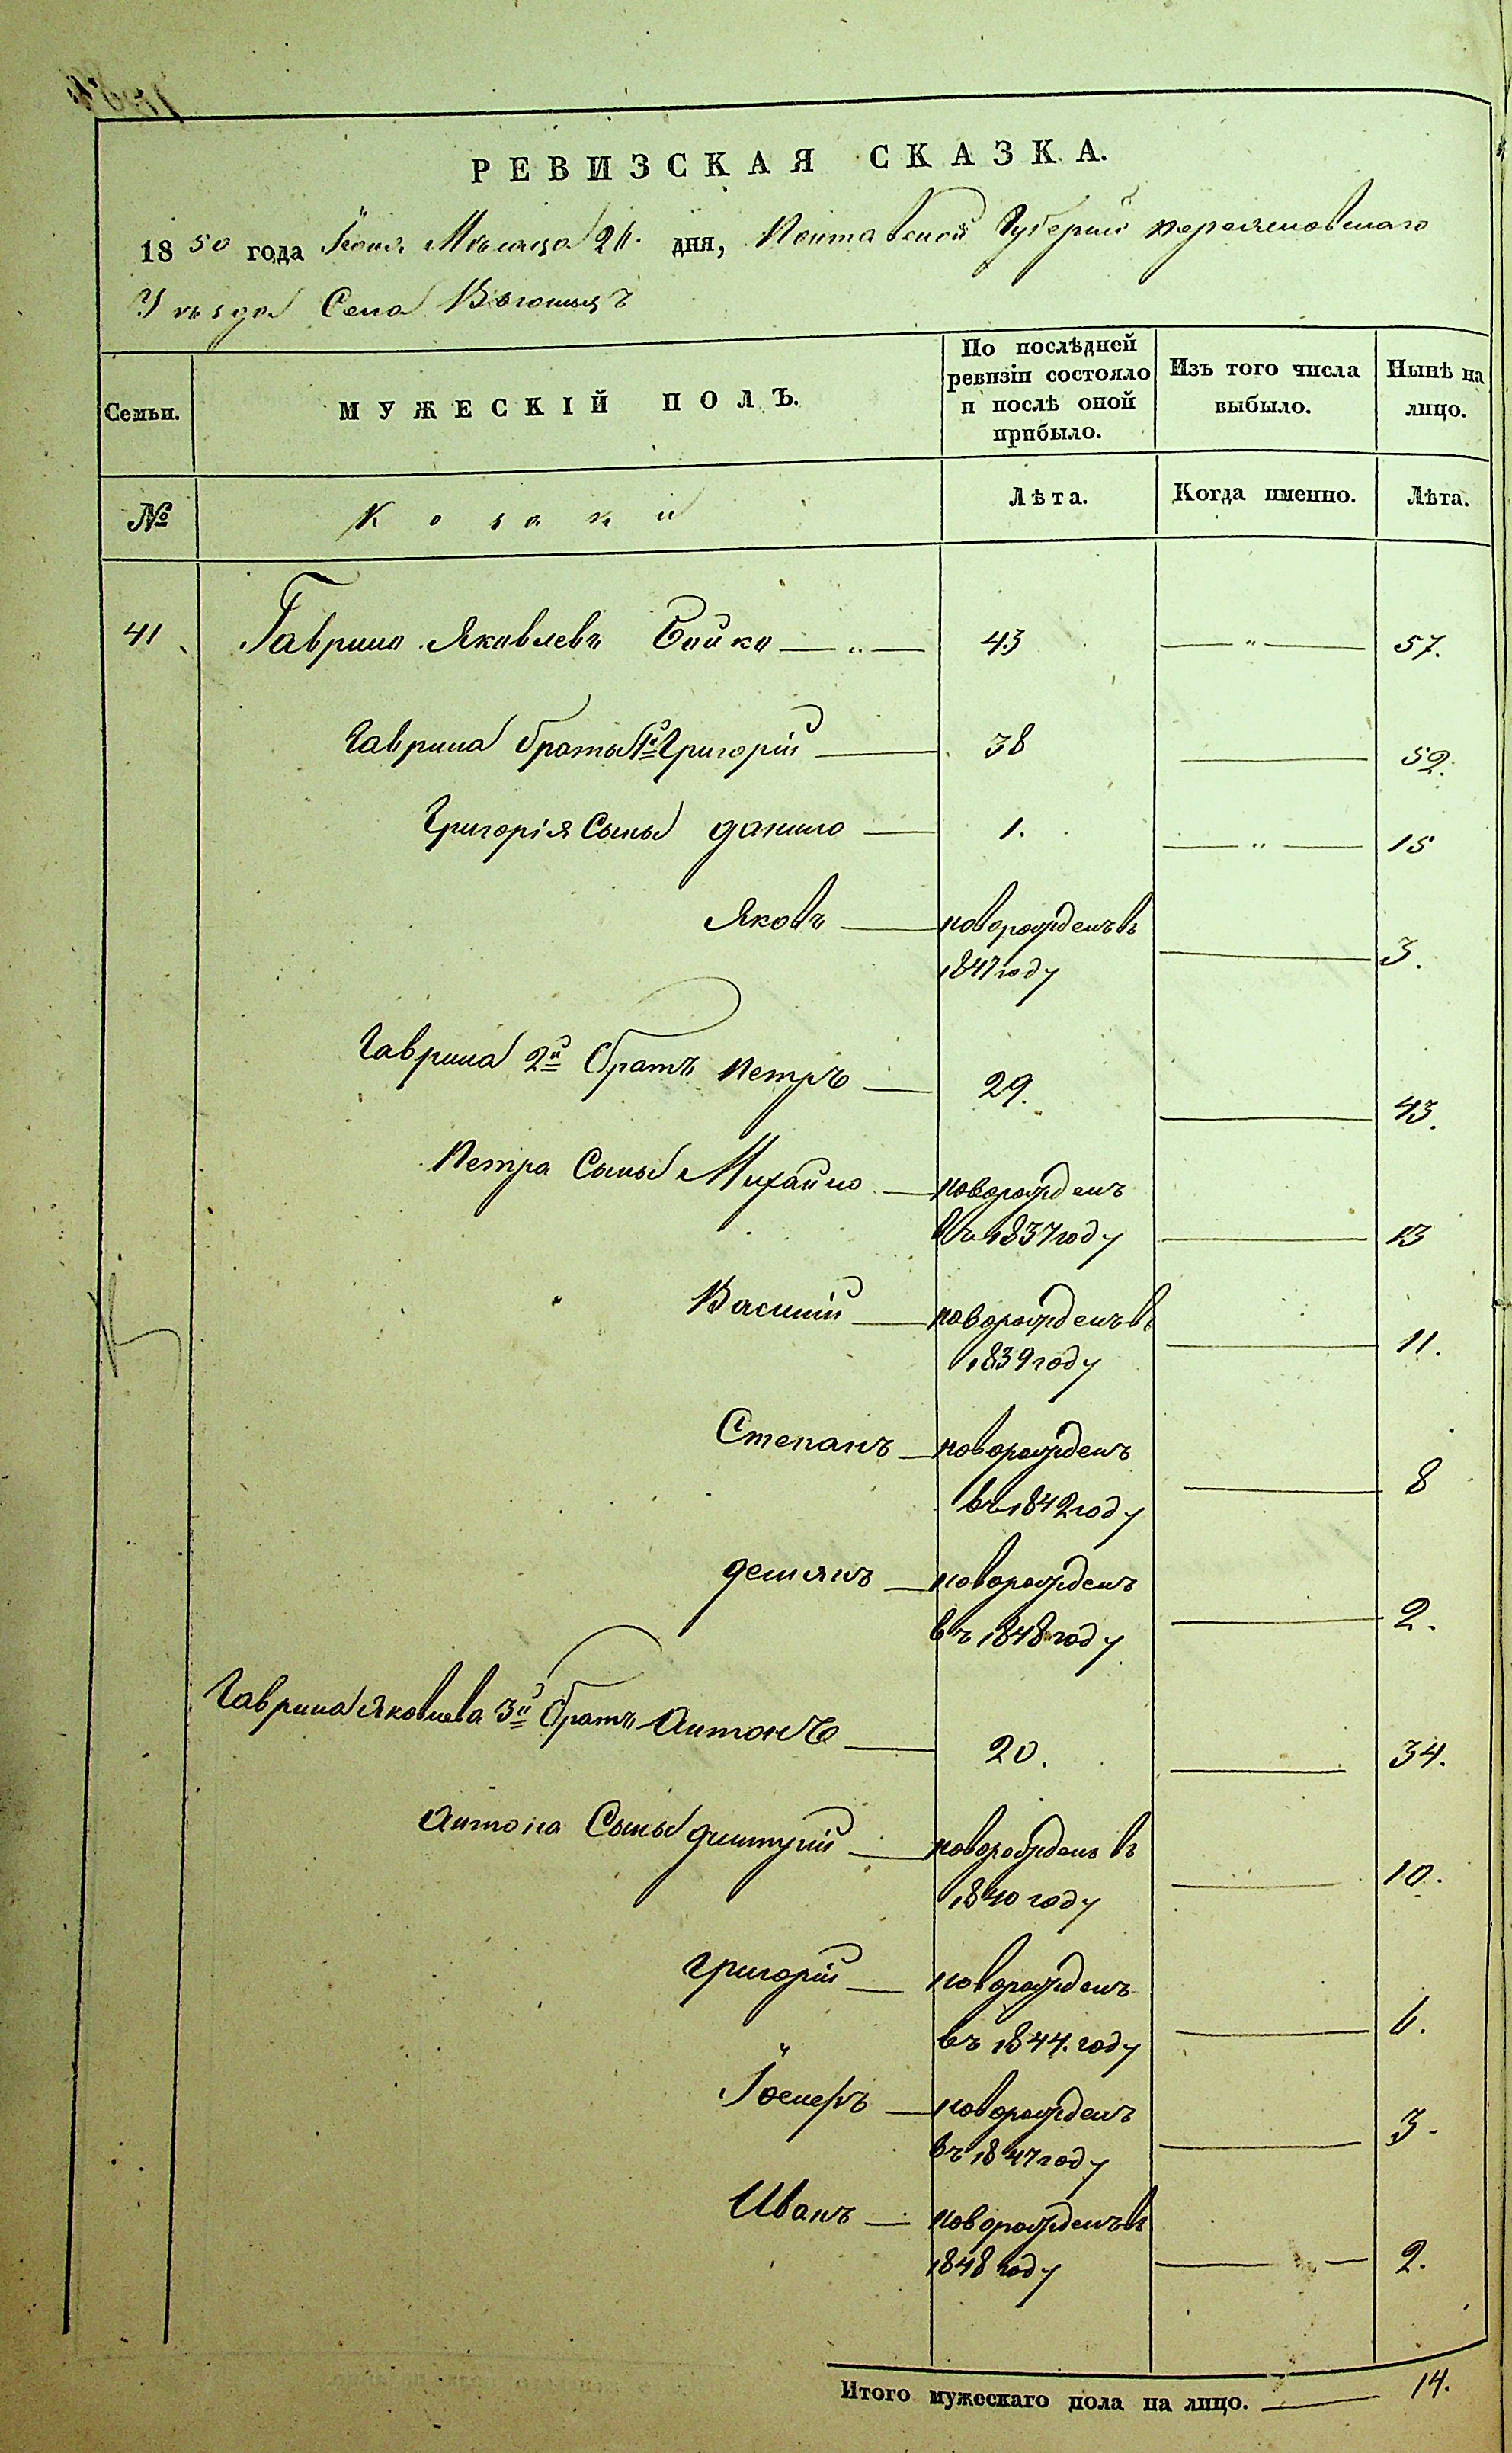 РЕВИЗСКАЯ СКАЗКА.
1850 года Іюня Мѣсяца 26. дня, Полтавской Губерніи Переяславскаго
Уѣзда Села
Семьи.
МУЖЕСКІЙ ПОЛЪ.
По послѣдней ревизіи состояло и послѣ оной прибыло.
Изъ того числа выбыло.
Нынѣ на лицо.
№
Козаки
Лѣта.
Когда именно.
Лѣта.
41 Гаврило Яковлевъ Бойко — „ — 43 — „ — 57.
Гаврила братья 1й Григорій — 38 — 52.
Григорія Сыны данило — 1. — „ — 15
Яковъ — новорожденъ въ
1847 году — 3.
Гаврила 2й братъ Петръ — 29. — 43.
Петра Сыны Михайло — новорожденъ
въ 1837 году — 13
Василій — новорожденъ въ
1839 году — 11.
Степанъ — новорожденъ
въ 1842 году — 8
демянъ — новорожденъ
въ 1848 году — 2.
Гаврила Яковлева 3й братъ Антонъ — 20. — 34.
Антона Сыны дмитрій — новорожденъ въ
1840 году — 10.
Григорій — новорожденъ
въ 1844. году — 6.
Іосифъ — новорожденъ
въ 1847 году — 3.
Иванъ — новорожденъ въ
1848 году — 2.
Итого мужескаго пола на лицо. — 14.